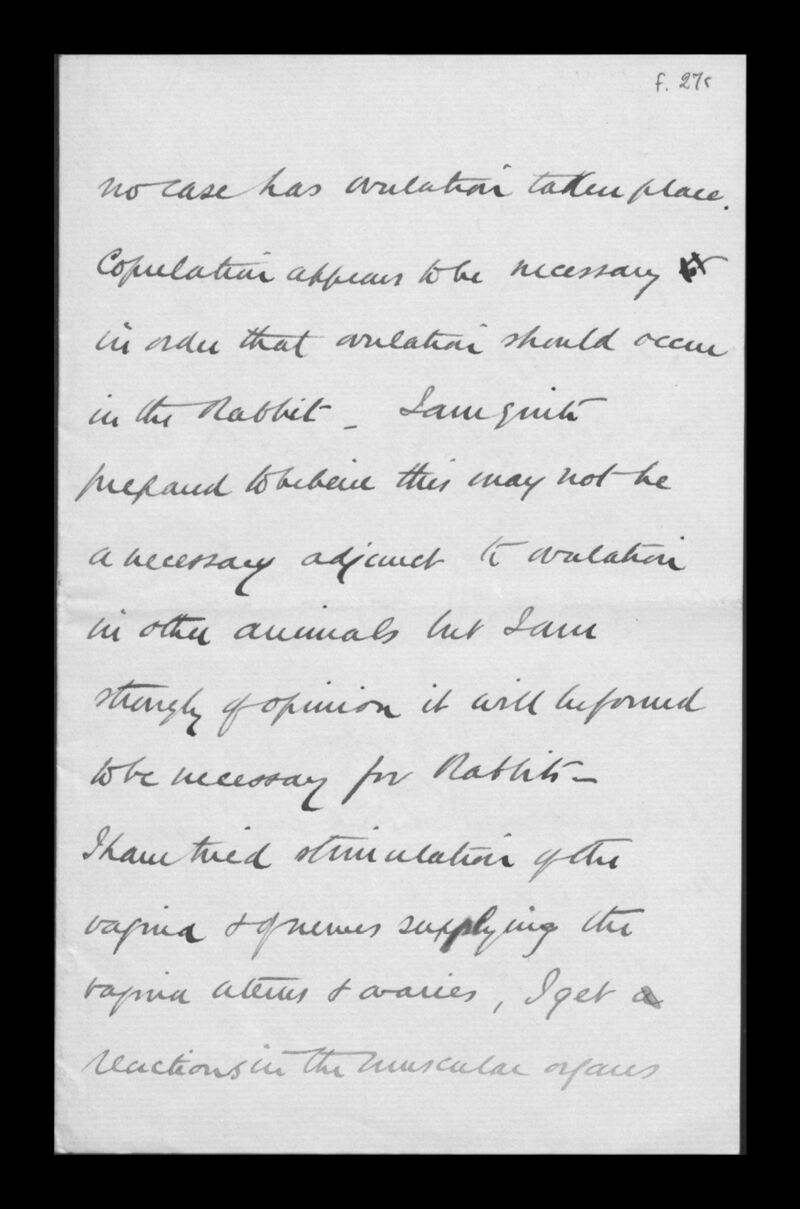 f. 27r
no case has ovulation taken place.
Copulation appears to be necessary
in order that ovulation should occur
in the Rabbit – I am quite
prepared to believe this may not be
a necessary adjunct to ovulation
in other animals but I am
strongly of opinion it will be found
to be necessary for Rabbits –
I have tried stimulation of the
vagina & of nerves supplying the
vagina uterus & ovaries, I get a
reactions in the muscular organs